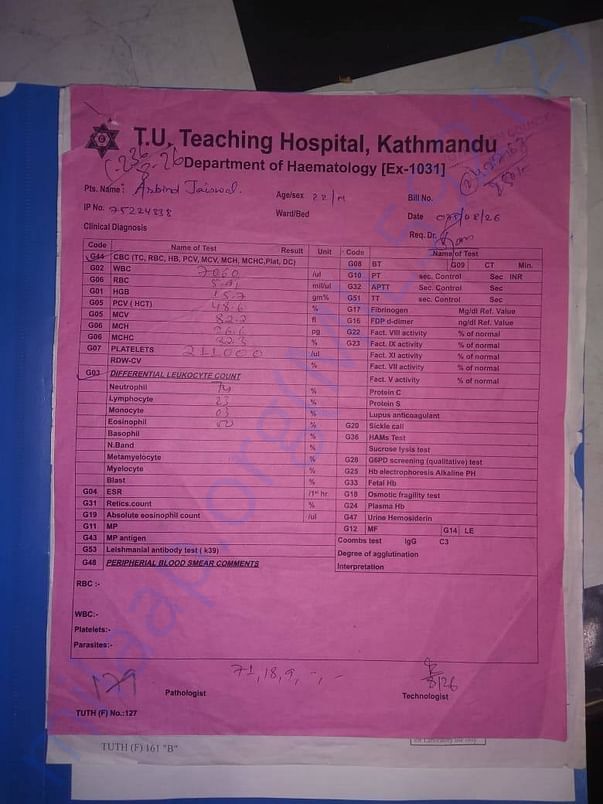 T.U. Teaching Hospital, Kathmandu
Department of Haematology [Ex-1031]
Pts. Name : Arbind Jaiswal. Age/sex 22/M Bill No.
IP No. 75224838 Ward/Bed Date 08/26
Clinical Diagnosis Req. Dr.
Code Name of Test Result Unit
G44 CBC (TC, RBC, HB, PCV, MCV, MCH, MCHC,Plat, DC)
G02 WBC 7060 /ul
G06 RBC mil/ul
G01 HGB 15.7 gm%
G05 PCV ( HCT) 48.6 %
G05 MCV 82.2 fl
G06 MCH 26.6 pg
G06 MCHC 32.3 %
G07 PLATELETS 211000 /ul
RDW-CV %
G03 DIFFERENTIAL LEUKOCYTE COUNT
Neutrophil %
Lymphocyte 23 %
Monocyte 03 %
Eosinophil 00 %
Basophil %
N.Band %
Metamyelocyte %
Myelocyte %
Blast %
G04 ESR /1st hr.
G31 Retics.count %
G19 Absolute eosinophil count /ul
G11 MP
G43 MP antigen
G53 Leishmanial antibody test ( k39)
G48 PERIPHERAL BLOOD SMEAR COMMENTS
Code Name of Test
G08 BT G09 CT Min.
G10 PT sec. Control Sec INR
G32 APTT Sec. Control Sec
G51 TT sec. Control Sec
G17 Fibrinogen Mg/dl Ref. Value
G16 FDP d-dimer ng/dl Ref. Value
G22 Fact. VIII activity % of normal
G23 Fact. IX activity % of normal
Fact. XI activity % of normal
Fact. VII activity % of normal
Fact. V activity % of normal
Protein C
Protein S
Lupus anticoagulant
G20 Sickle call
G36 HAMs Test
Sucrose lysis test
G26 G6PD screening (qualitative) test
G25 Hb electrophoresis Alkaline PH
G33 Fetal Hb
G18 Osmotic fragility test
G24 Plasma Hb
G47 Urine Hemosiderin
G12 MF G14 LE
Coombs test IgG C3
Degree of agglutination
Interpretation
RBC :-
WBC:-
Platelets:-
Parasites:-
71, 18, 9, -, -
179 8/26
Pathologist Technologist
TUTH (F) No.:127
TUTH (F) 161 "B"